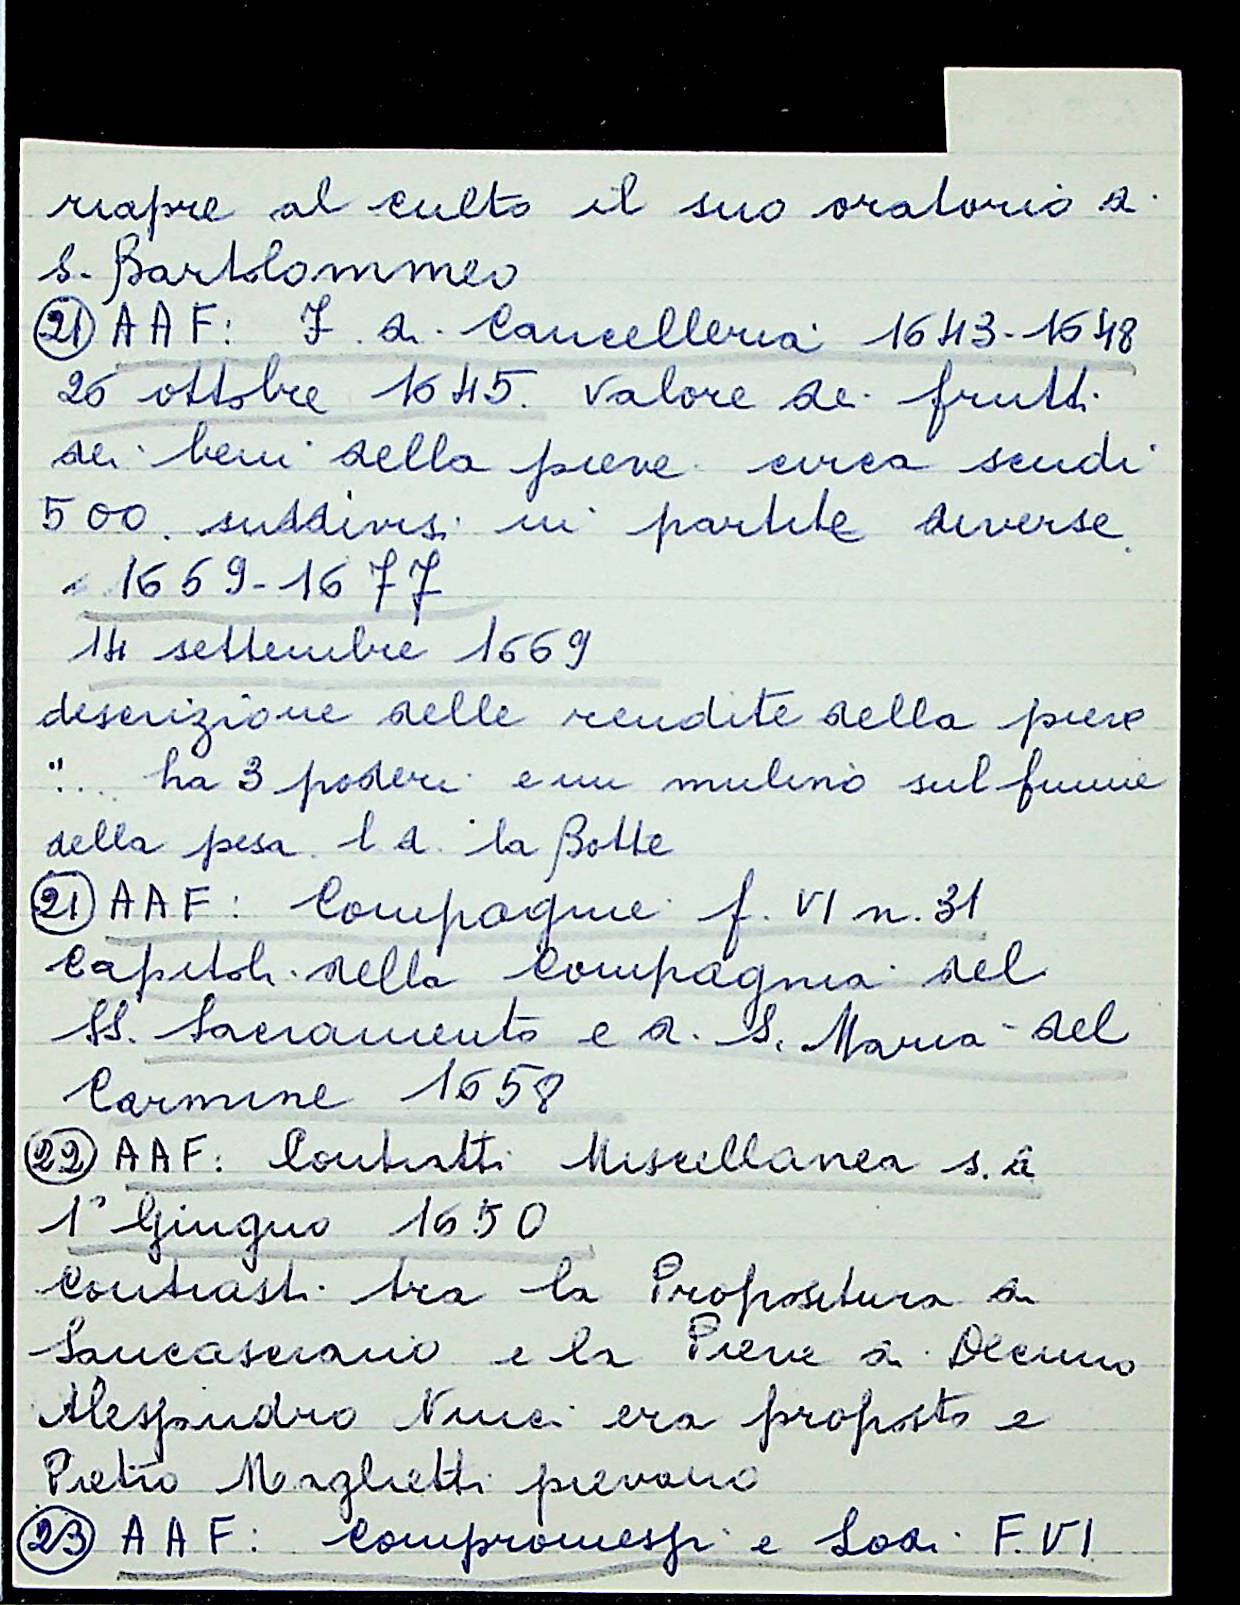 riapre al culto il suo oratorio di
S. Bartolommeo
21 AAF: F. di Cancelleria 1643-1648
26 ottobre 1645. Valore dei frutti
dei beni della pieve circa scudi
500. suddivisi in partite diverse.
1669-1677
14 settembre 1669
descrizione delle rendite della pieve
"... ha 3 poderi e un mulino sul fiume
della pesa l.d. la Botte
21 AAF: Compagnie f. VI n. 31
Capitoli della Compagnia del
SS. Sacramento e di S. Maria del
Carmine 1658
22 AAF: Contratti Miscellanea s. a
1° Giugno 1650
Contrasti tra la Propositura di
Sancasciano e la Pieve di Decimo
Alessandro era proposto e
Pietro pievano
23 AAF: Compromessi e Lodi F. VI